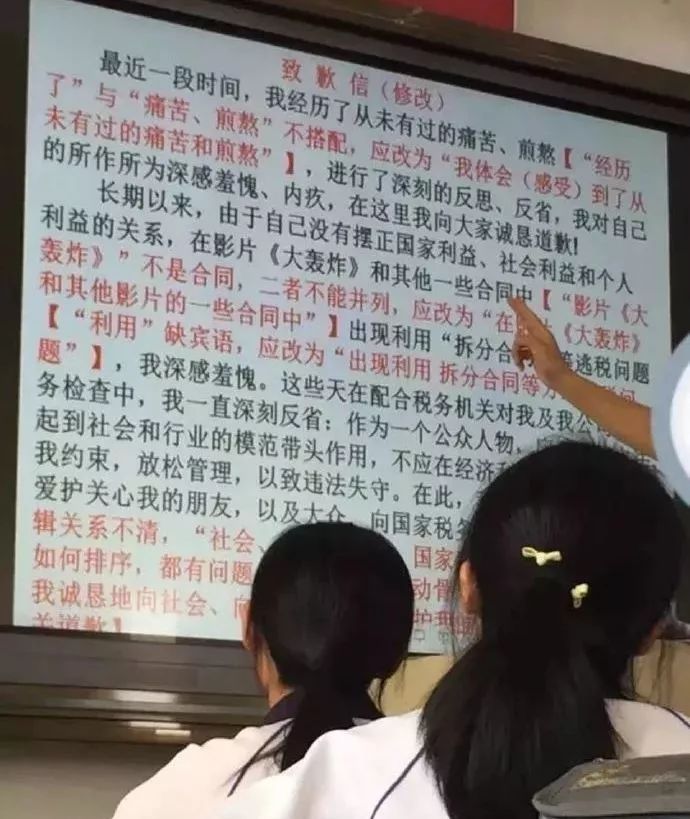 致歉信（修改）
最近一段时间，我经历了从未有过的痛苦、煎熬【“经历
了”与“痛苦、煎熬”不搭配，应改为“我体会（感受）到了从
未有过的痛苦和煎熬”】，进行了深刻的反思、反省，我对自己
的所作所为深感羞愧、内疚，在这里我向大家诚恳道歉！
长期以来，由于自己没有摆正国家利益、社会利益和个人
利益的关系，在影片《大轰炸》和其他一些合同中【“影片《大
轰炸》”不是合同，二者不能并列，应改为“在 《大轰炸》
和其他影片的一些合同中”】出现利用“拆分合同 等逃税问题
【“利用”缺宾语，应改为“出现利用 拆分合同等
题”】，我深感羞愧。这些天在配合税务机关对我及我公
务检查中，我一直深刻反省：作为一个公众人物，
起到社会和行业的模范带头作用，不应在经济
我约束，放松管理，以致违法失守。在此，
爱护关心我的朋友，以及大众 向国家税务
辑关系不清，“社会、 国家
如何排序，都有问题 动
我诚恳地向社会、向 护我
关道歉】